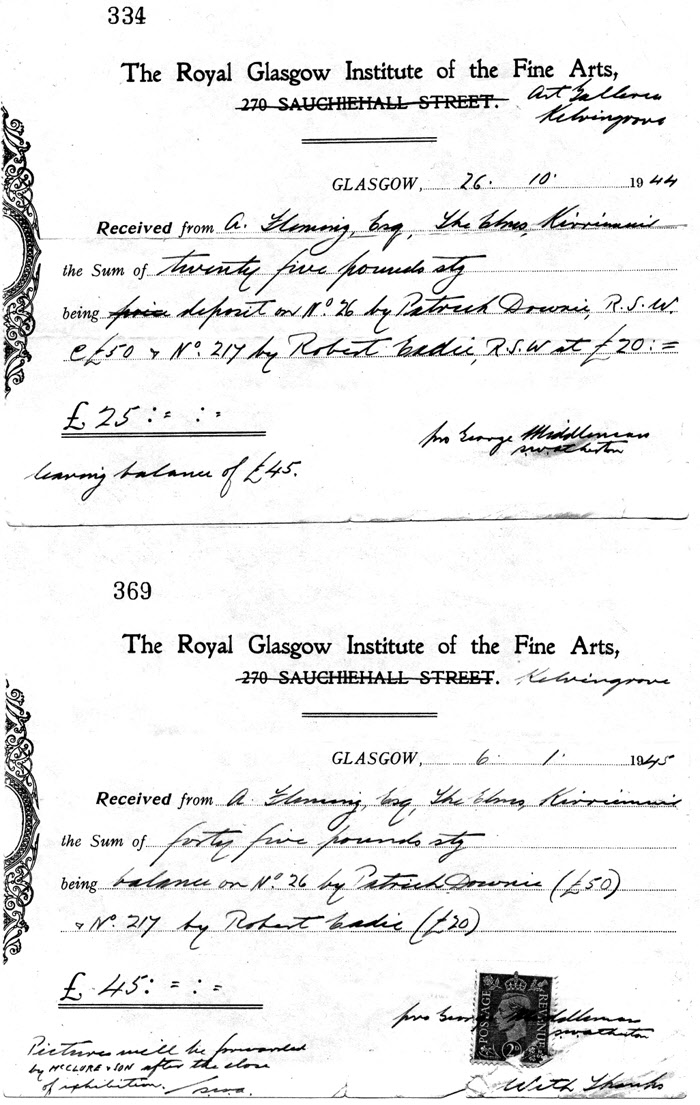 334
The Royal Glasgow Institute of the Fine Arts,
270 SAUCHIEHALL STREET. Art Galleries
Kelvingrove
GLASGOW, 26. 10. 1944
Received from A. Fleming, Esq, The Elms, Kirriemuir
the Sum of twenty five pounds stg
being price deposit on No. 26 by Patrick Downie, R.S.W.
@ £50 & No. 217 by Robert Eadie, R.S.W at £20:=
£ 25: = : =
pro George Middlemass
leaving balance of £45.
369
The Royal Glasgow Institute of the Fine Arts,
270 SAUCHIEHALL STREET. Kelvingrove
GLASGOW, 6. 1. 1945
Received from A. Fleming, Esq, The Elms, Kirriemuir
the Sum of forty five pounds stg
being balance on No. 26 by Patrick Downie (£50)
& No. 217 by Robert Eadie (£20)
£ 45: = : =
POSTAGE REVENUE
pro George Middlemass
Pictures will be forwarded
by McCLURE & SON after the close
of exhibition.
With Thanks